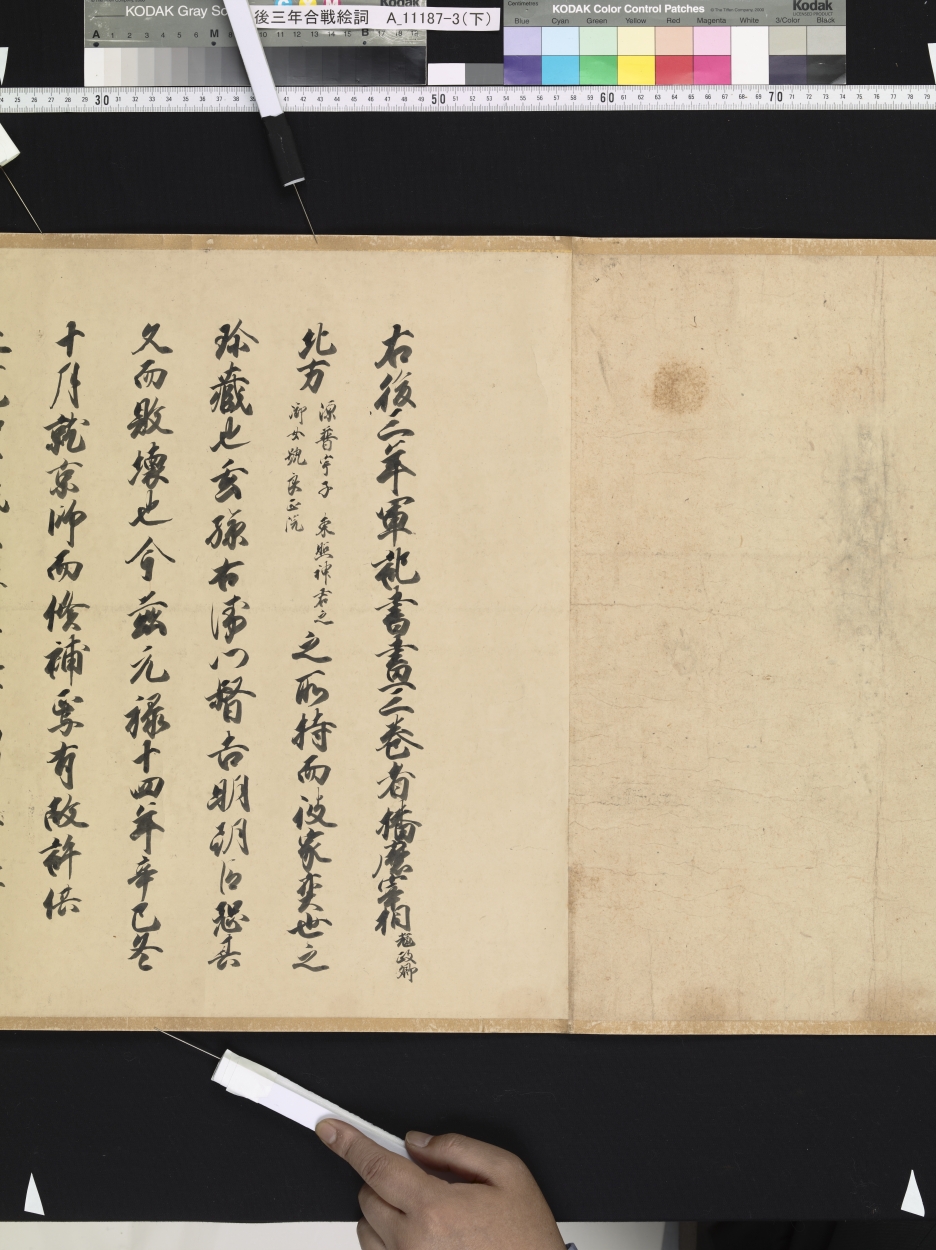 KODAK Gray Sc
後三年合戦絵詞 A_11187-3(下)
Kodak
KODAK Color Control Patches
Kodak
LICENSED PRODUCT
Centimetres
Blue Cyan Green Yellow Red Magenta White 3/Color Black
A 1 2 3 4 5 6 M 8 9 10 11 12 13 14 15 B 17 18 19
30 50 60 70
右後三年軍記書畫三巻者播磨宰相
輝政卿
北方
源普宇子 東照神君之
御女號良正院
之所持而彼家奕世之
珍藏也玄孫右衛門督吉明朝臣恐其
久而敗壊也今茲元禄十四年辛巳冬
十月就京師而修補焉有故許借